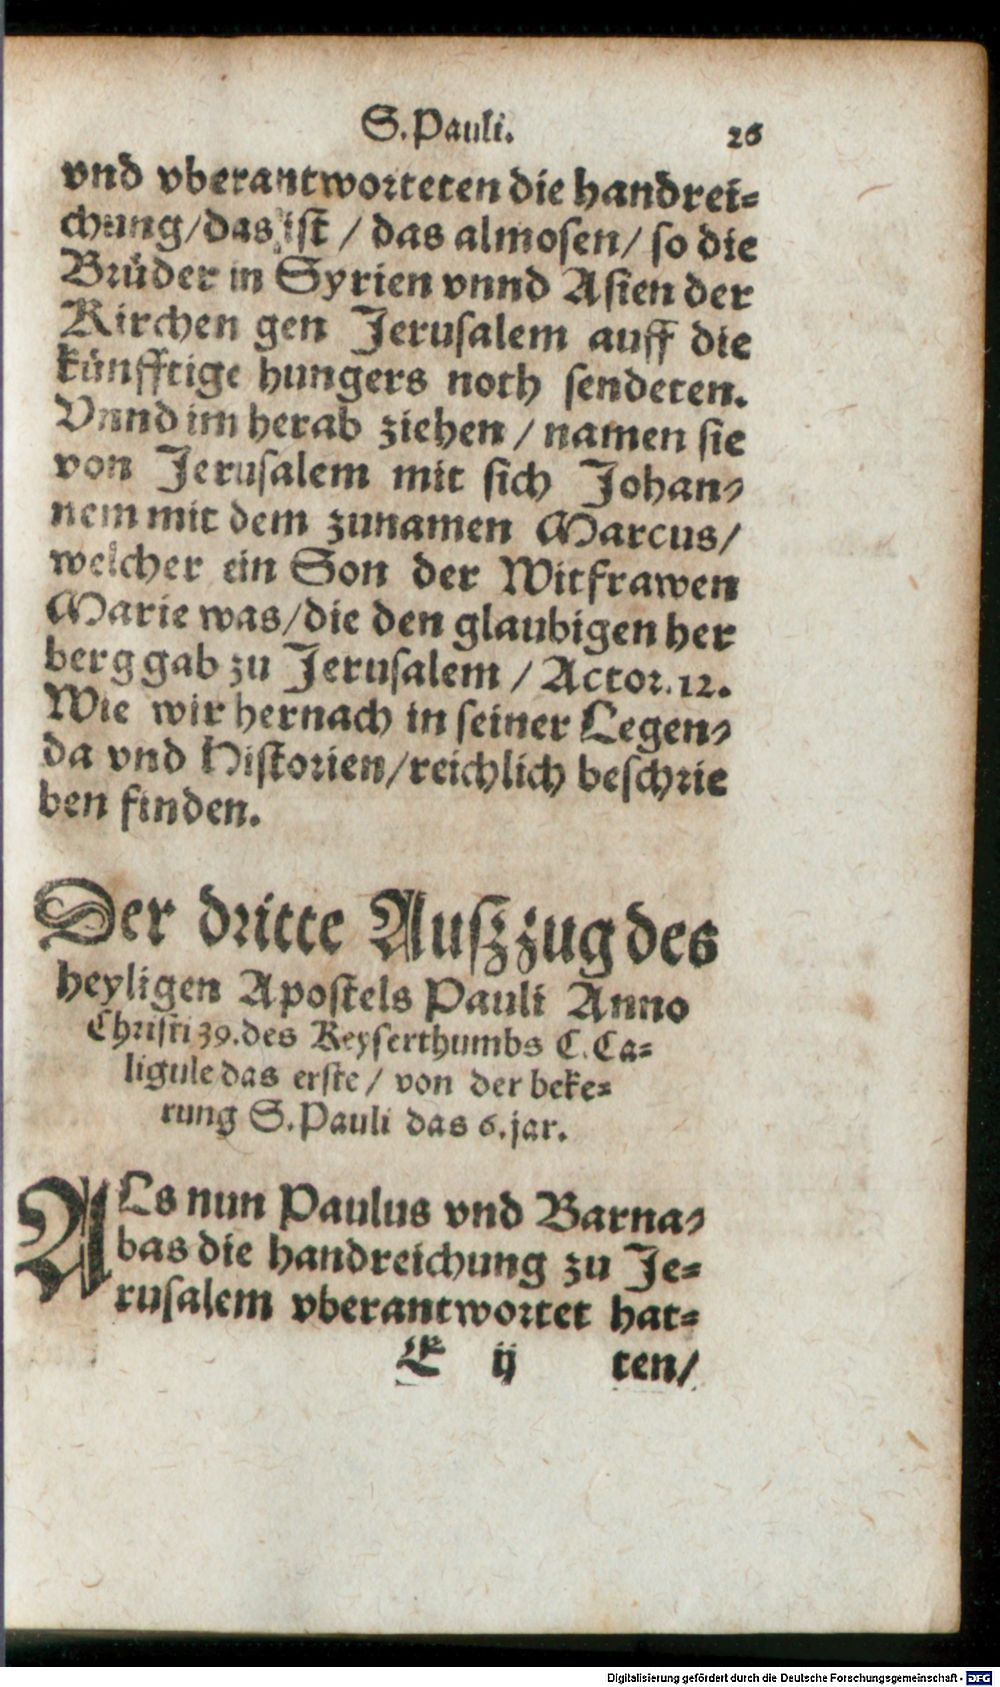 S. Pauli. 26
vnd vberantworteten die handrei=
chung/das ist / das almosen/ so die
Brüder in Syrien vnnd Asien der
Kirchen gen Jerusalem auff die
künfftige hungers noth sendeten.
Vnnd im herab ziehen / namen sie
von Jerusalem mit sich Johan=
nem mit dem zunamen Marcus/
welcher ein Son der Witfrawen
Marie was/die den glaubigen her
berg gab zu Jerusalem / Actor. 12.
Wie wir hernach in seiner Legen=
da vnd Historien/reichlich beschrie
ben finden.
Der dritte Außzug des
heyligen Apostels Pauli Anno
Christi 39. des Keyserthumbs C. Ca=
ligule das erste / von der beke=
rung S. Pauli das 6. jar.
ALs nun Paulus vnd Barna=
bas die handreichung zu Je=
rusalem vberantwortet hat=
E ij ten/
Digitalisierung gefördert durch die Deutsche Forschungsgemeinschaft - DFG